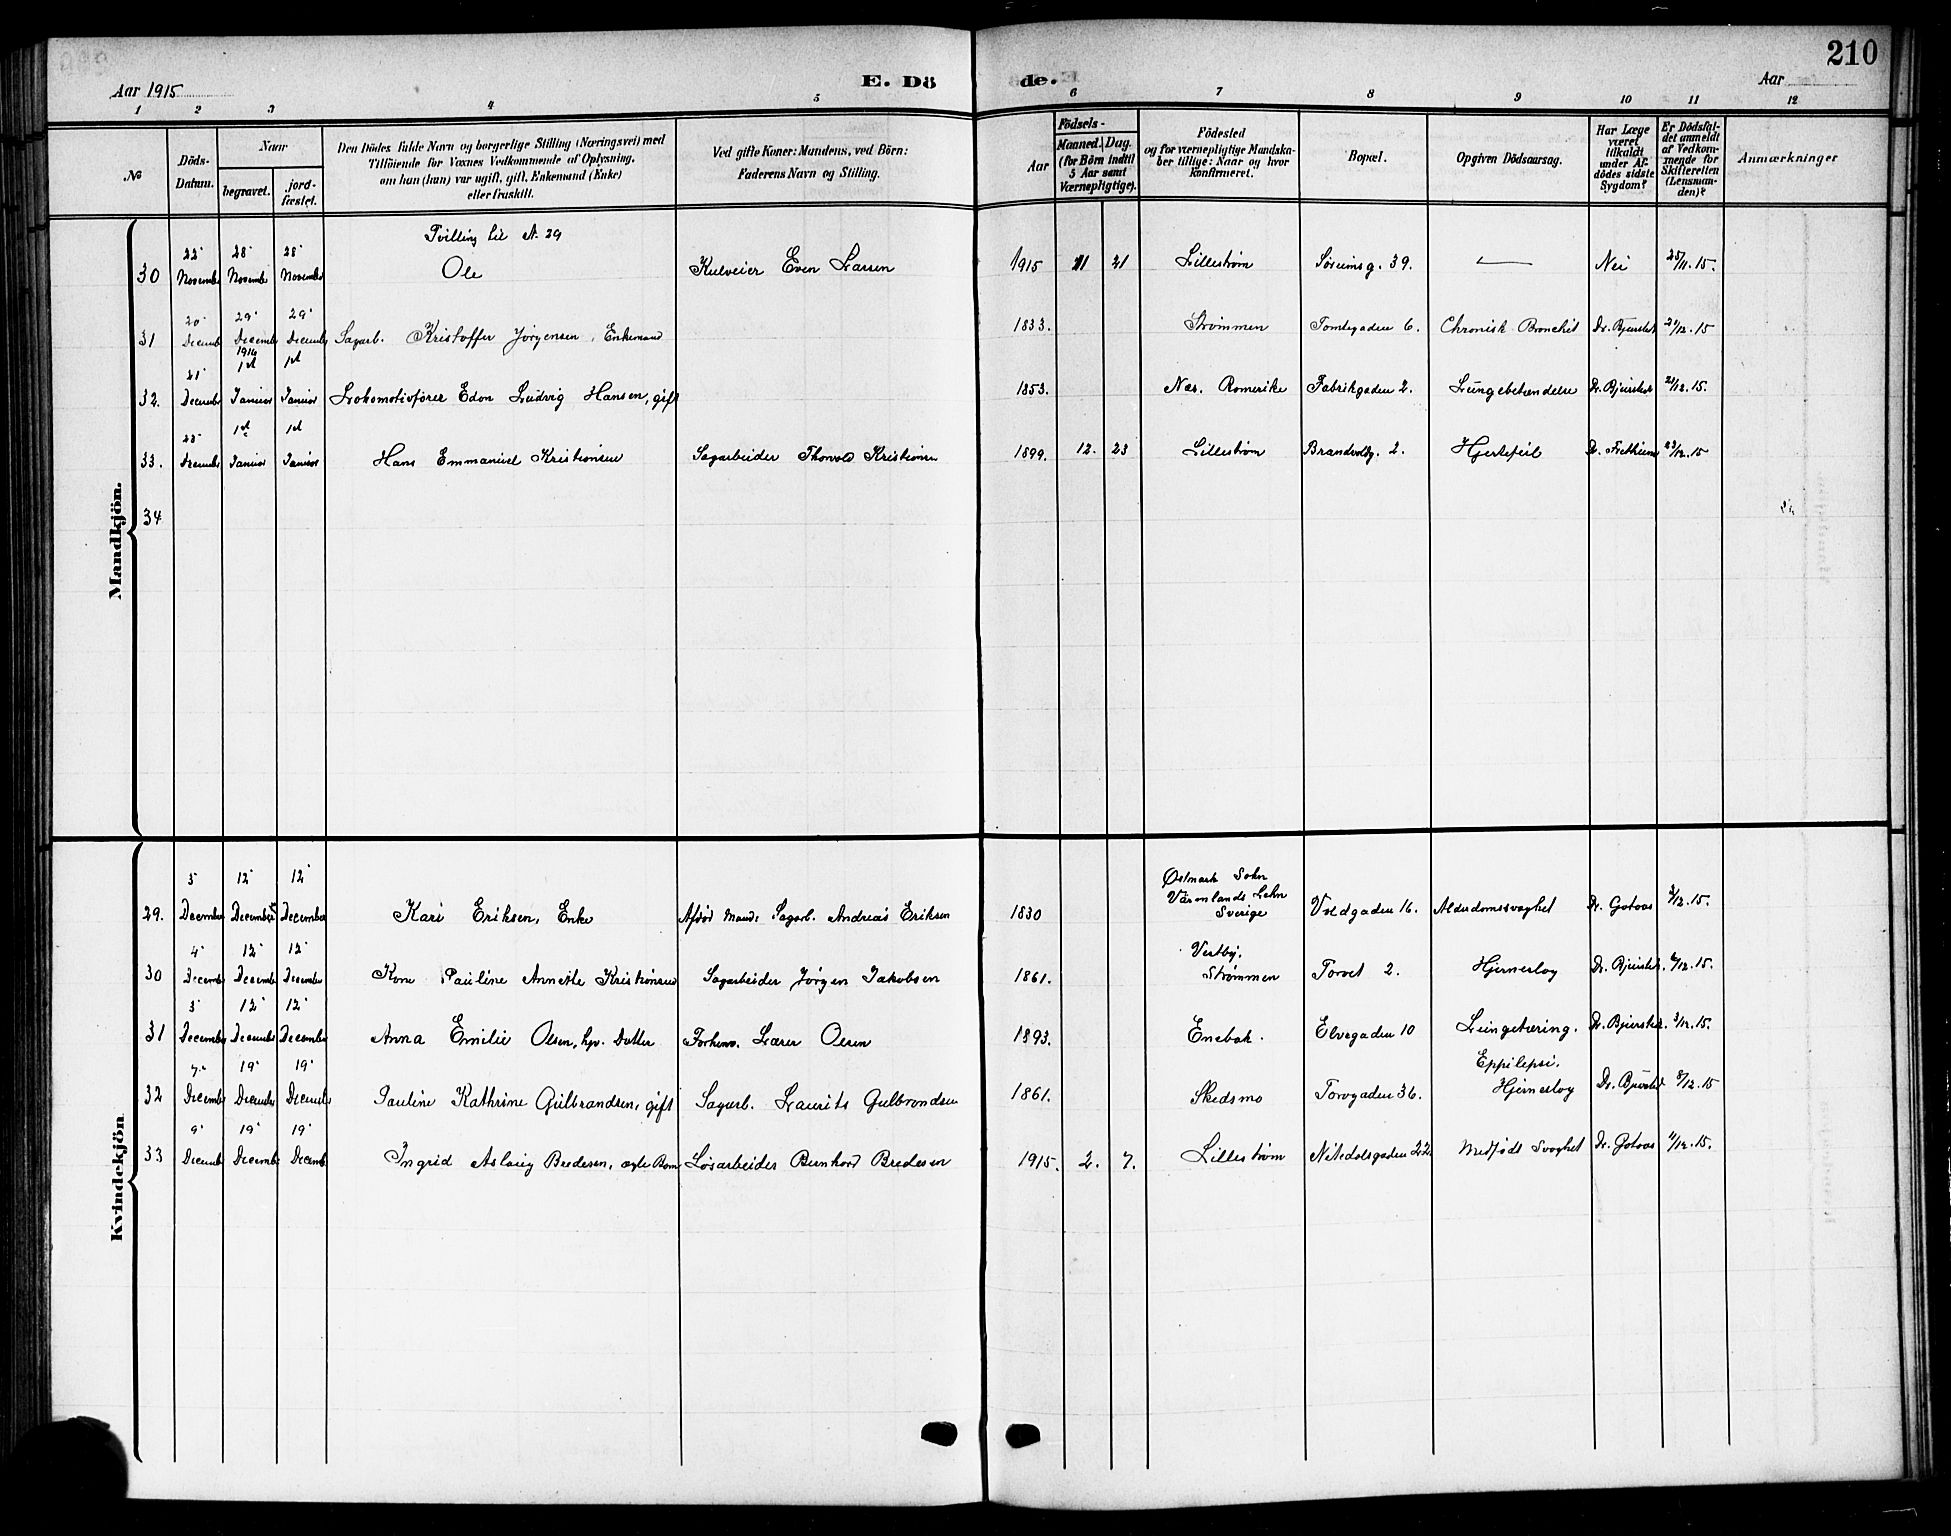 210
Aar 1915
E. Dö
de.
Aar
1 2 3 4 5 6 7 8 9 10 11 12
№
Döds-
Datum.
Naar
begravet.
jord-
fæstet.
Den Dödes fulde Navn og borgerlige Stilling (Næringsvei) med
Tilföiende for Voxnes Vedkommende af Oplysning,
om hun (han) var ugift, gift, Enkemand (Enke)
eller fraskilt.
Ved gifte Koner: Mandens, ved Börn:
Faderens Navn og Stilling.
Födsels-
Aar
Maaned. Dag.
(for Börn indtil
5 Aar samt
Værnepligtige).
Födested
og for værnepligtige Mandska-
ber tillige: Naar og hvor
konfirmeret.
Bopæl.
Opgiven Dödsaarsag.
Har Læge
været
tilkaldt
under Af-
dödes sidste
Sygdom?
Er Dödsfal-
det anmeldt
af Vedkom-
mende for
Skifteretten
(Lensman-
den)?
Anmærkninger
Mandkjön.
Tvilling til N. 29
30 22' November 28' November 28' November Ole Kulveier Even Larsen 1915 11 21 Lillestrøm Sørumsg. 39. — Nei 25/11.15.
31 20' Decemb 29' Decemb 29' Decemb Sagarb. Kristoffer Jørgensen, Enkemand 1833. Strømmen Tomtegaden 6. Chronisk Bronchit Dr. Bjursted 21/12.15
32. 21' Decemb 1916 1st Januar 1st Januar Lokomotivfører Edon Ludvig Hansen, gift 1853. Nes. Romerike Fabrikgaden 2. Lungebetændelse Dr. Bjursted 21/12.15.
33. 23' Decemb 1st Januar 1st Januar Hans Emmanuel Kristiansen Sagarbeider Thorvald Kristiansen 1899. 12. 23 Lillestrøm Brandvoldg. 2. Hjertefeil Dr. Fretheim 23/12.15
34
Kvindekjön
29. 3 December 12' December 12' December Kari Eriksen, Enke Afdød Mand: Sagarb. Andreas Eriksen 1830 Østmark Sokn Värmlands Lehn Sverige Voldgaden 16. Alderdomssvaghet Dr. Gotaas 3/12.15.
30 4' Decemb 12' Decemb 12' Decemb Kone Pauline Annette Kristiansen Sagarbeider Jørgen Jakobsen 1861. Vestby. Strømmen Torvet 2. Hjerneslag Dr. Bjursted 6/12.15.
31 3' December 12' December 12' December Anna Emilie Olsen, hjv. Datter Forhenv. Lærer Olsen 1893. Enebak. Elvegaden 10 Lungetæring. Dr. Bjursted. 3/12.15.
32 7' Decemb 19' Decemb 19' Decemb Pauline Kathrine Gulbrandsen, gift Sagarb. Laurits Gulbrandsen 1861. Skedsmo Torvgaden 36. Eppilepsi. Hjerneslag Dr. Bjursted 8/12.15
33 9' Decemb 19' Decemb 19' Decemb Ingrid Aslaug Bredesen, ægte Barn Løsarbeider Bernhard Bredesen 1915. 2. 7. Lillestrøm Nitedalsgaden 22. Medfødt Svaghet Dr. Gotaas 11/12.15.